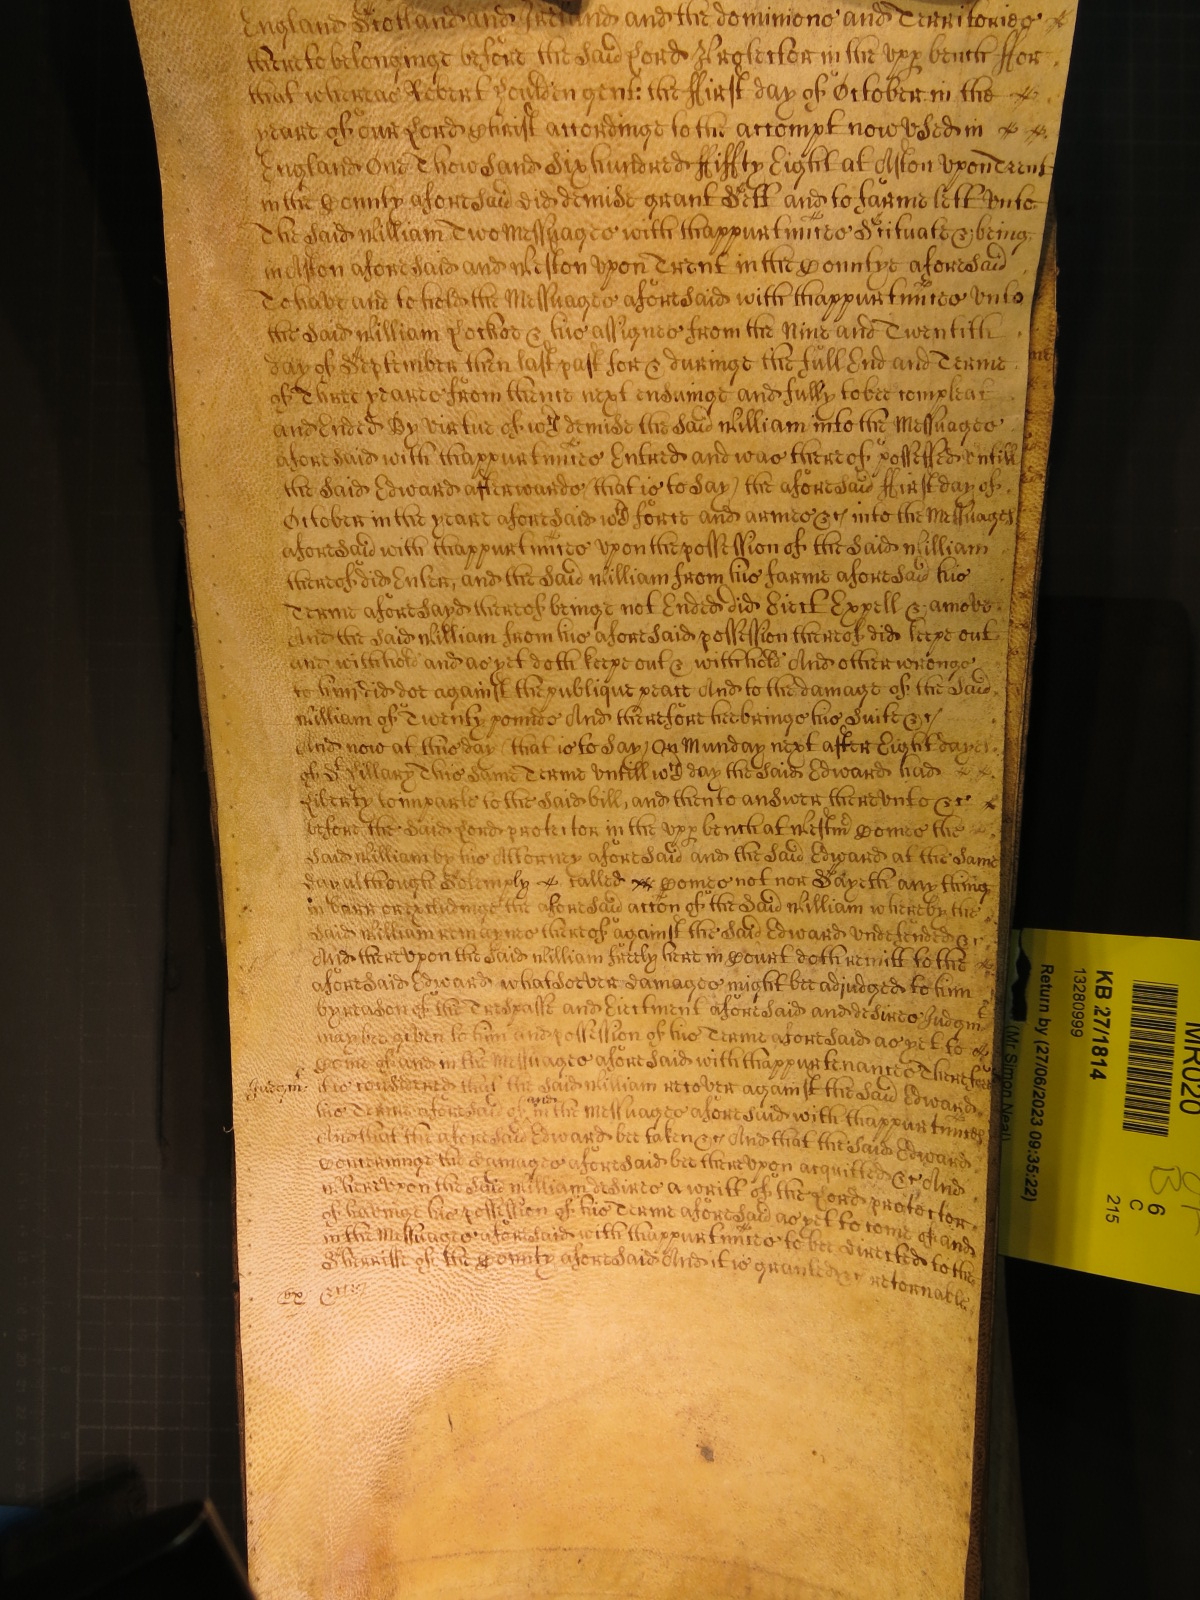 England Scotland and Ireland and the dominions and Territories
thereto belonginge before the said Lord Protector in the upp bench ffor
that whereas Robert Holden gent: the ffirst day of October in the
yeare of our Lord Christ accordinge to the accompt now used in
England One Thowsand Six hundred ffiffty Eight at Aston upon Trent
in the County aforesaid did demise grant sett and to farme lett unto
the said William Two Messuages with thappurtnnces Scituate & being
in Aston aforesaid and Weston upon Trent in the Countye aforesaid
To have and to hold the Messuages aforesaid with thappurtnnces unto
the said William & his assignes from the Nine and Twentith
day of September then last past for & duringe the full End and Terme
of Three yeares from thence next ensuinge and fully to bee compleat
and Ended By virtue of wch demise the said William into the Messuages
aforesaid with thappurtnnces Entred and was thereof possessed untill
the said Edward afterwards, that is to say, the aforesaid ffirst day of
October in the yeare aforesaid wth force and armes &c into the Messuages
aforesaid with thappurtnnces upon the possession of the said William
thereof did Enter, and the said William from his farme aforesaid his
Terme aforesayd thereof beinge not Ended did Eiect Expell & amove
And the said William from his aforesaid possession thereof did keepe out
and withhold and as yet doth keepe out & withhold And other wrongs
to him did doe against the publique peace And to the damage of the said
William of Twenty pounds And therefore hee brings his Suite &c
And now at this day (that is to say) On Munday next after Eight dayes
of St Hillary This same Terme untill wch day the said Edward had
Liberty to imparle to the said bill, and then to answer thereunto &c
before the said Lord protector in the upp bench at Westmr Comes the
said William by his Attorney aforesaid and the said Edward at the same
day although Solemply called Comes not nor Sayeth any thing
in barr or precludinge the aforesaid accon of the said William whereby the
said William remaynes thereof against the said Edward undefended &c
And thereupon the said William freely here in Court doth remitt to the
aforesaid Edward whatsoever damages might bee adjudged to him
by reason of the Trespasse and Eiectment aforesaid and desires Judgmt
may bee given to him and possession of his Terme aforesaid as yet to
Come of and in the Messuages aforesaid with thappurtenances Therefore
Judgmt: It is considered that the said William recover against the said Edward
his Terme aforesaid of and in the Messuages aforesaid with thappurtnnces
And that the aforesaid Edward bee taken &c And that the said Edward
Concerninge the damages aforesaid bee thereupon acquitted &c And
whereupon the said William desires a writt of the Lord protector
of havinge his possession of his Terme aforesaid as yet to come of and
in the Messuages aforesaid with thappurtnnces to bee directed to the
Sherriffe of the County aforesaid And it is granted &c retornable
Ex &c
MR020
KB 27/1814
13280999
Return by (27/06/2023 09:35:22)
(Mr Simon Neal)
6
C
215